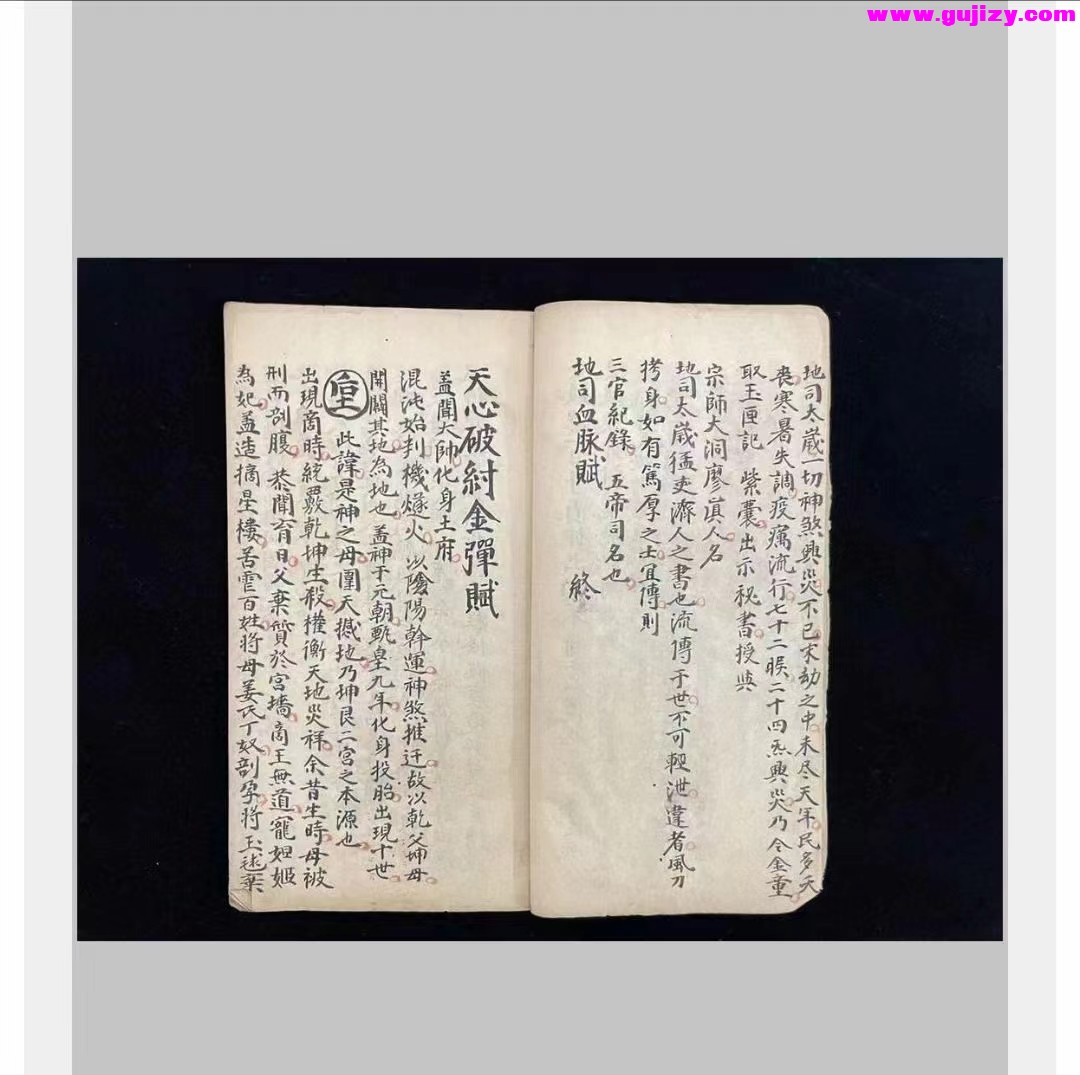 www.gujizy.com
地司太歲一切神煞興災不已末劫之中未尽天年民多夭
喪寒暑失調疫癘流行七十二睺二十四炁興災乃令金童
取玉匣記 紫囊出示秘書授與
宗師大洞廖眞人名
地司太歲猛吏濟人之書也流傳于世不可輕泄違者風刀
拷身如有篤厚之士宜傳則
三官紀錄 五帝司名也
地司血脉賦 終
天心破紂金彈賦
盖聞大帥化身土府
混沌始判機燧火以陰陽斡運神煞推迁故以乾父坤母
開闢其地為地也盖神于元朝甄皇九年化身投胎出現十世
此諱是神之母圍天撼地乃坤艮二宮之本源也
出現商時統覈乾坤生殺權衡天地災祥余昔生時母被
刑而剖腹 恭聞育日父棄質於宮墻商王無道寵妲姬
為妃盖造摘星樓苦霍百姓将母姜氏丁奴剖孕将玉毬棄